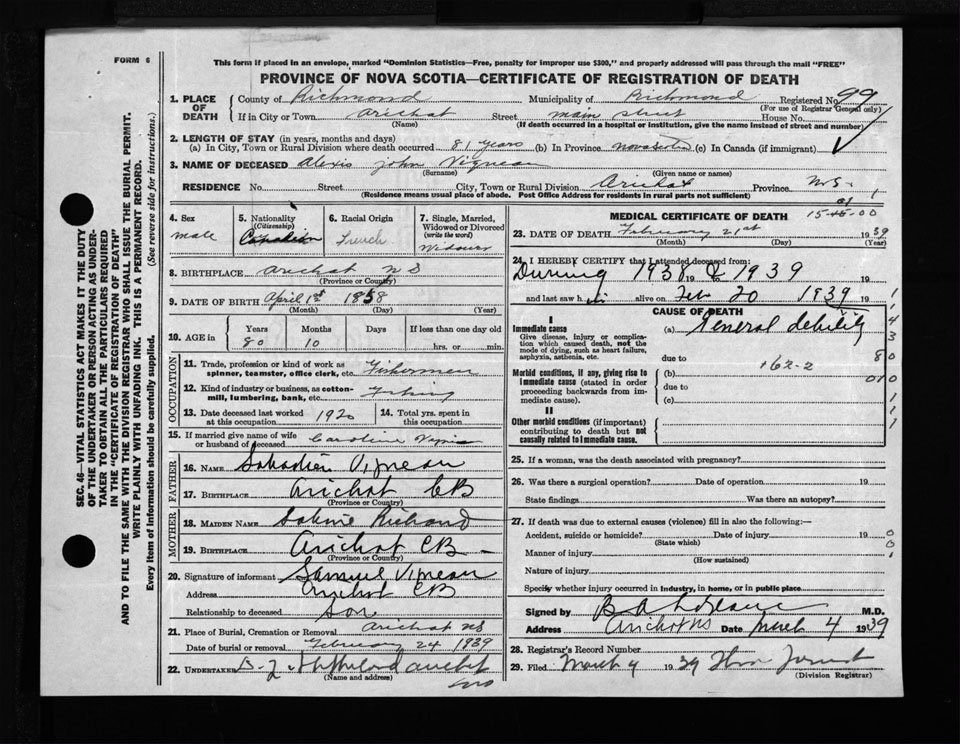 FORM 6
This form if placed in an envelope, marked "Dominion Statistics—Free, penalty for improper use $300," and properly addressed will pass through the mail "FREE"
PROVINCE OF NOVA SCOTIA—CERTIFICATE OF REGISTRATION OF DEATH
SEC. 46—VITAL STATISTICS ACT MAKES IT THE DUTY
OF THE UNDERTAKER OR PERSON ACTING AS UNDER-
TAKER TO OBTAIN ALL THE PARTICULARS REQUIRED
IN THE "CERTIFICATE OF REGISTRATION OF DEATH"
AND TO FILE THE SAME WITH THE DIVISION REGISTRAR WHO SHALL ISSUE THE BURIAL PERMIT.
WRITE PLAINLY WITH UNFADING INK. THIS IS A PERMANENT RECORD.
Every item of Information should be carefully supplied. (See reverse side for instructions.)
1. PLACE OF DEATH County of Richmond Municipality of Richmond Registered No. 99
(For use of Registrar General only)
If in City or Town Arichat Street main street House No.
(Name) (If death occurred in a hospital or institution, give the name instead of street and number)
2. LENGTH OF STAY (in years, months and days)
(a) In City, Town or Rural Division where death occurred 81 years (b) In Province Nova Scotia (c) In Canada (if immigrant)
3. NAME OF DECEASED Alexis John Vigneau
(Surname) (Given name or names)
RESIDENCE No. Street City, Town or Rural Division Arichat Province N.S.
(Residence means usual place of abode. Post Office Address for residents in rural parts not sufficient)
4. Sex
male
5. Nationality
(Citizenship)
Canadian
6. Racial Origin
French
7. Single, Married,
Widowed or Divorced
(write the word)
Widower
8. BIRTHPLACE Arichat NS
(Province or Country)
9. DATE OF BIRTH April 1st 1858
(Month) (Day) (Year)
10. AGE in Years Months Days If less than one day old
80 10 hrs. or min.
OCCUPATION
11. Trade, profession or kind of work as
spinner, teamster, office clerk, etc. Fishermen
12. Kind of industry or business, as cotton-
mill, lumbering, bank, etc. Fishing
13. Date deceased last worked
at this occupation 1920
14. Total yrs. spent in
this occupation
15. If married give name of wife
or husband of deceased Caroline
FATHER
16. NAME Vigneau
17. BIRTHPLACE Arichat CB
(Province or Country)
MOTHER
18. MAIDEN NAME Sabine Richard
19. BIRTHPLACE Arichat CB
(Province or Country)
20. Signature of informant Samuel Vigneau
Address Arichat CB
Relationship to deceased Son
21. Place of Burial, Cremation or Removal Arichat NS
Date of burial or removal February 24 1939
22. UNDERTAKER Arichat
(Name and address)
NS
MEDICAL CERTIFICATE OF DEATH
23. DATE OF DEATH February 21st 1939
(Month) (Day) (Year)
24. I HEREBY CERTIFY that I attended deceased from
During 1938 19 & 1939 19
and last saw him alive on Feb 20 1939 19
CAUSE OF DEATH
I
Immediate cause (a) General debility
Give disease, injury or complica-
tion which caused death, not the
mode of dying, such as heart failure,
asphyxia, asthenia, etc.
due to
Morbid conditions, if any, giving rise to
immediate cause (stated in order
proceeding backwards from im-
mediate cause).
(b) 162-2
due to
(c)
II
Other morbid conditions (if important)
contributing to death but not
causally related to immediate cause.
25. If a woman, was the death associated with pregnancy?
26. Was there a surgical operation? Date of operation 19
State findings Was there an autopsy?
27. If death was due to external causes (violence) fill in also the following:—
Accident, suicide or homicide? Date of injury 19
(State which)
Manner of injury
(How sustained)
Nature of injury
Specify whether injury occurred in industry, in home, or in public place
Signed by M.D.
Address Arichat NS Date March 4 1939
28. Registrar's Record Number
29. Filed March 4 1939
(Division Registrar)